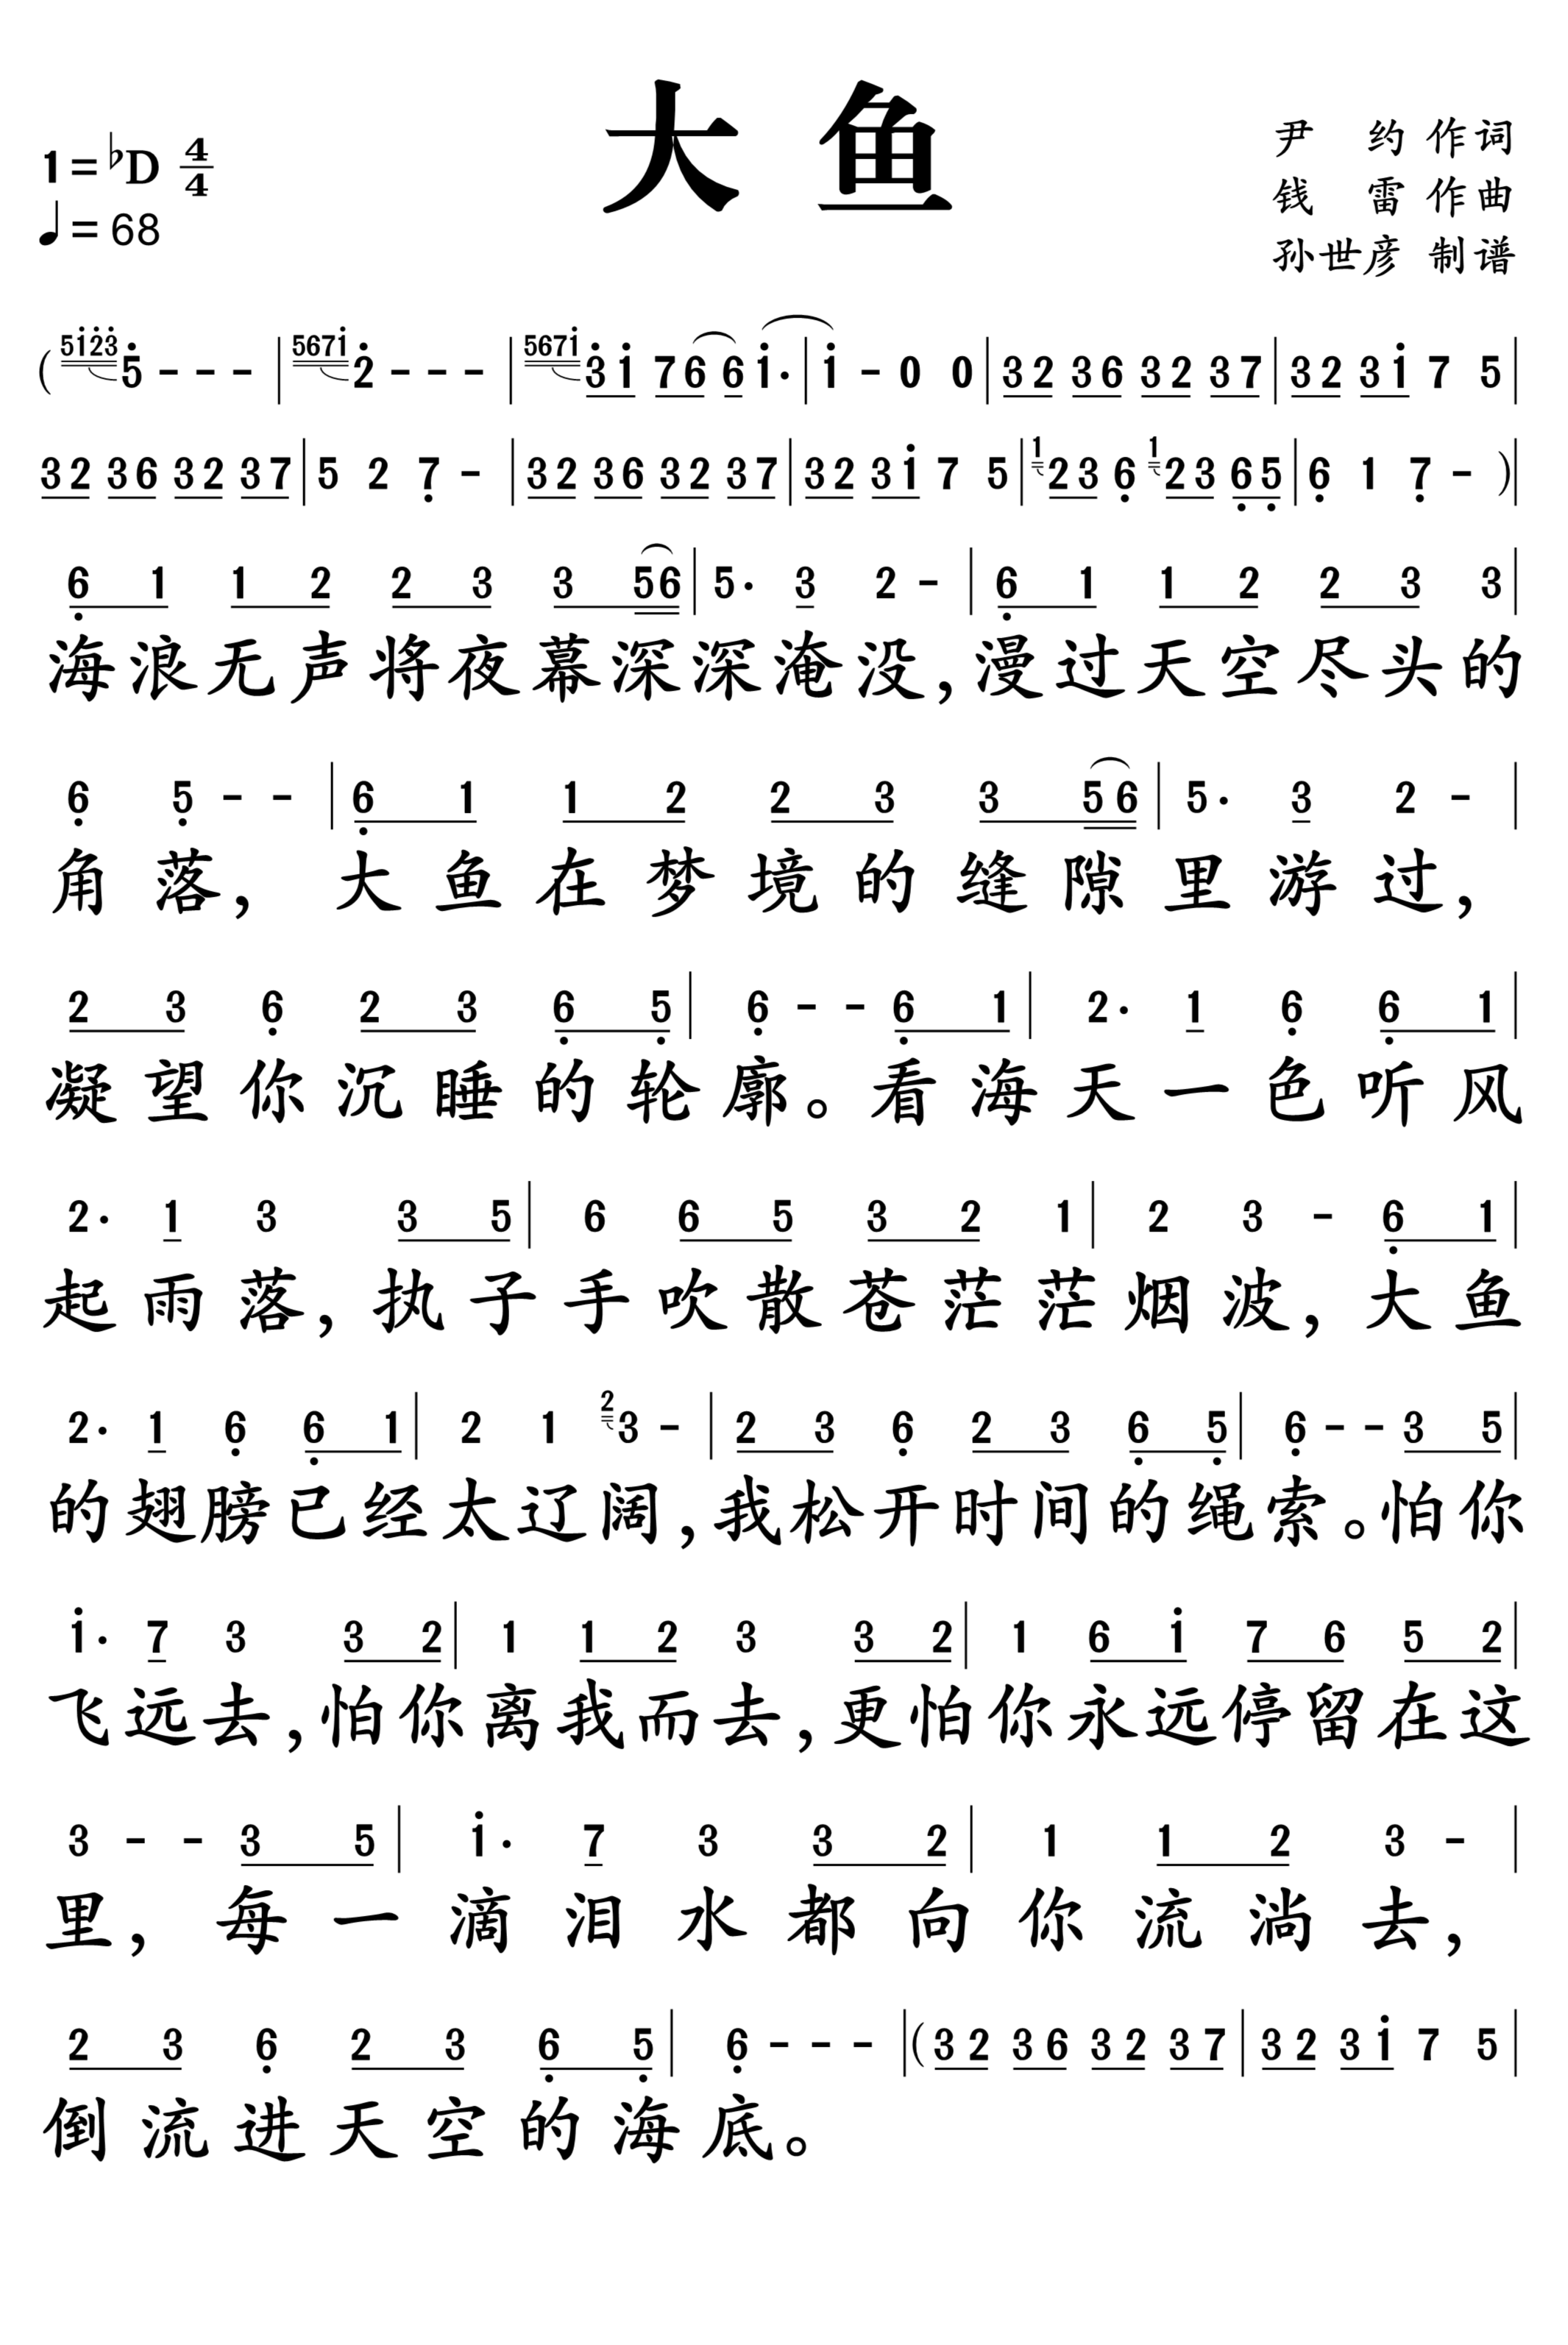 大鱼
1=♭D 4/4
♩=68
尹 约 作词
钱 雷 作曲
孙世彦 制谱
( 51̇2̇3̇ 5̇ - - - | 5671̇ 2̇ - - - | 5671̇ 3̇ 1̇ 7 6 6 1̇· | 1̇ - 0 0 | 3 2 3 6 3 2 3 7 | 3 2 3 1̇ 7 5 |
3 2 3 6 3 2 3 7 | 5 2 7̣ - | 3 2 3 6 3 2 3 7 | 3 2 3 1̇ 7 5 | 1 2 3 6̣ 1 2 3 6̣ 5̣ | 6̣ 1 7̣ - ) |
6̣ 1 1 2 2 3 3 5 6 | 5· 3 2 - | 6̣ 1 1 2 2 3 3 |
海浪无声将夜幕深深淹没,漫过天空尽头的
6̣ 5̣ - - | 6̣ 1 1 2 2 3 3 5 6 | 5· 3 2 - |
角落,大鱼在梦境的缝隙里游过,
2 3 6̣ 2 3 6̣ 5̣ | 6̣ - - 6̣ 1 | 2· 1 6̣ 6̣ 1 |
凝望你沉睡的轮廓。看海天一色听风
2· 1 3 3 5 | 6 6 5 3 2 1 | 2 3 - 6̣ 1 |
起雨落,执子手吹散苍茫茫烟波,大鱼
2· 1 6̣ 6̣ 1 | 2 1 2 3 - | 2 3 6̣ 2 3 6̣ 5̣ | 6̣ - - 3 5 |
的翅膀已经太辽阔,我松开时间的绳索。怕你
1̇· 7 3 3 2 | 1 1 2 3 3 2 | 1 6 1̇ 7 6 5 2 |
飞远去,怕你离我而去,更怕你永远停留在这
3 - - 3 5 | 1̇· 7 3 3 2 | 1 1 2 3 - |
里,每一滴泪水都向你流淌去,
2 3 6̣ 2 3 6̣ 5̣ | 6̣ - - - | ( 3 2 3 6 3 2 3 7 | 3 2 3 1̇ 7 5 |
倒流进天空的海底。